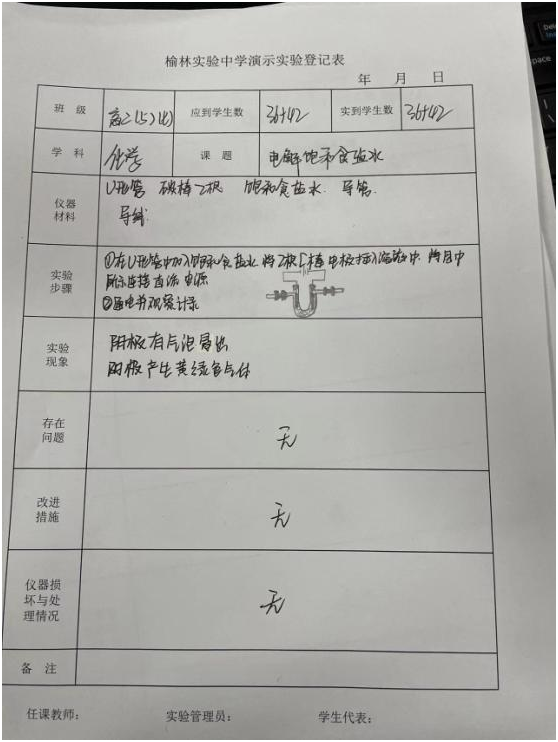 榆林实验中学演示实验登记表
年 月 日
班 级 高二(5)(6) 应到学生数 36+42 实到学生数 36+42
学 科 化学 课 题 电解饱和食盐水
仪器材料 U形管 碳棒2根 饱和食盐水 导管
导线
实验步骤 ①在U形管中加入饱和食盐水 将2根C棒电极插入溶液中 按图中
所示连接直流电源
②通电并观察记录
实验现象 阴极有气泡冒出
阳极产生黄绿色气体
存在问题 无
改进措施 无
仪器损坏与处理情况 无
备 注
任课教师： 实验管理员： 学生代表：